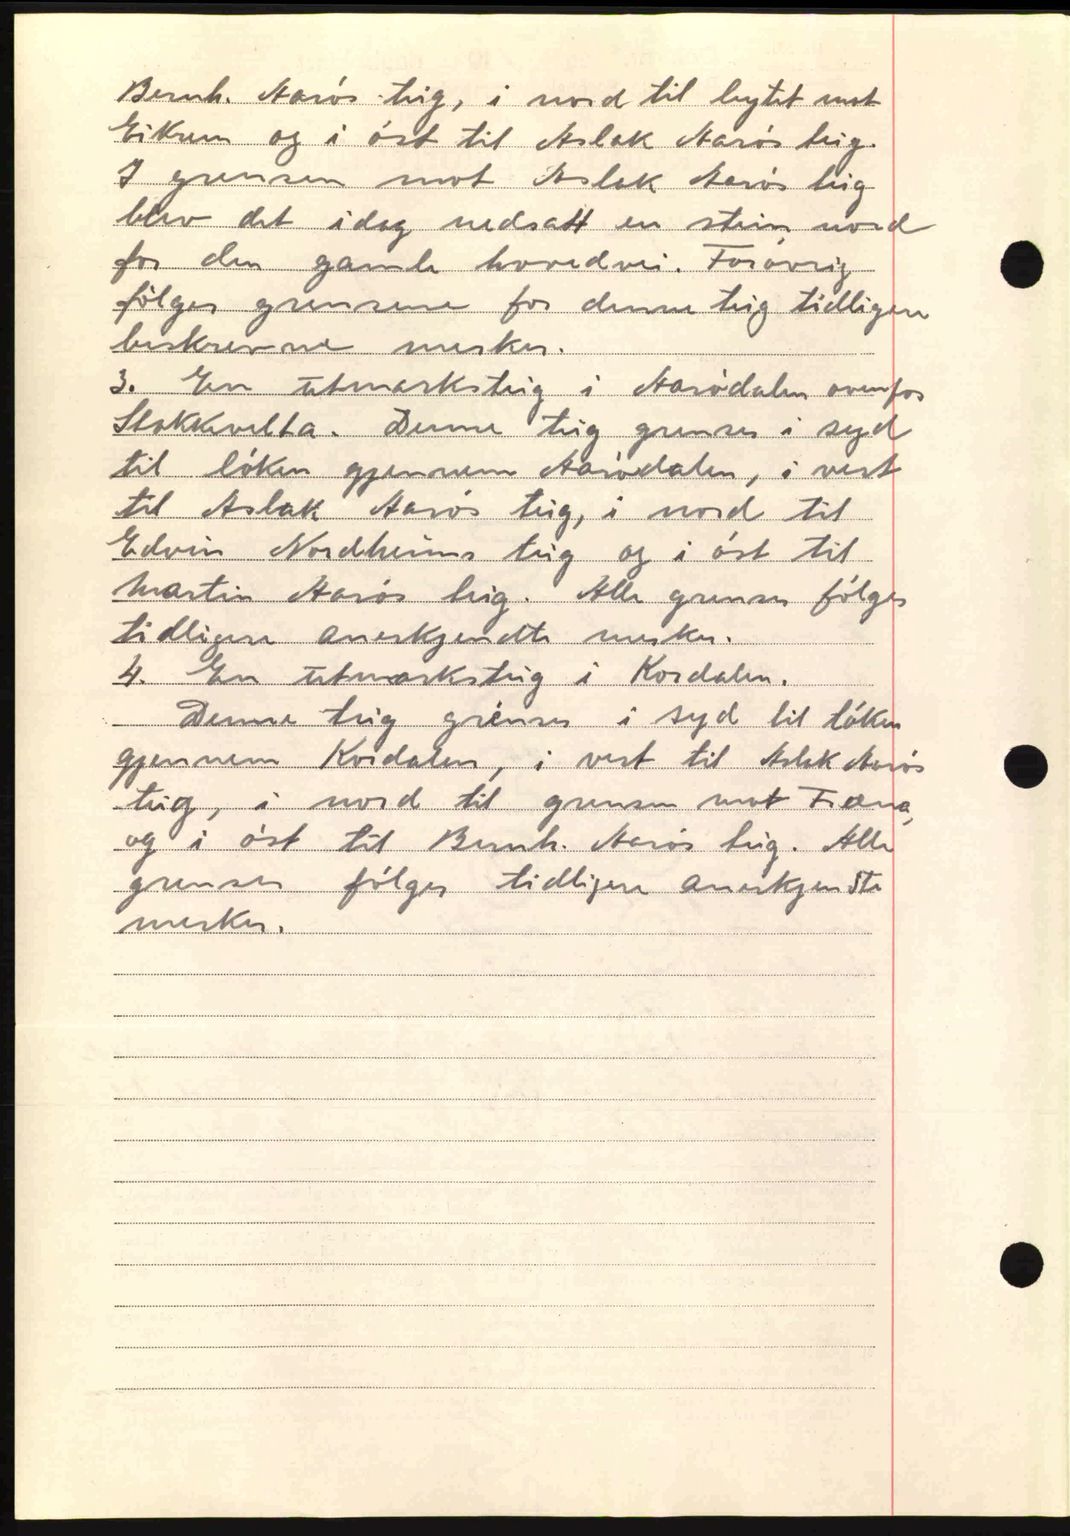 Bernh. Aarós teig, i nord til bytet mot
Eikrem og i óst til Aslak Aarós teig.
I grensen mot Aslak Aarós teig
blev det idag nedsatt en stein nord
for den gamle hovedvei. Foróvrig
fólges grensene for denne teig tidligere
beskrevne merker.
3. En utmarksteig i Aaródalen ovenfor
Stokkvelta. Denne teig grenser i syd
til lóken gjennem Aaródalen, i vest
til Aslak Aarós teig, i nord til
Edvin Nordheims teig og i óst til
Martin Aarós teig. Alle grenser fólges
tidligere anerkjendte merker.
4. En utmarksteig i Kordalen.
Denne teig grenser i syd til lóken
gjennem Kordalen, i vest til Aslak Aarós
teig, i nord til grensen mot Fræna,
og i óst til Bernh. Aarós teig. Alle
grenser fólges tidligere anerkjendte
merker.